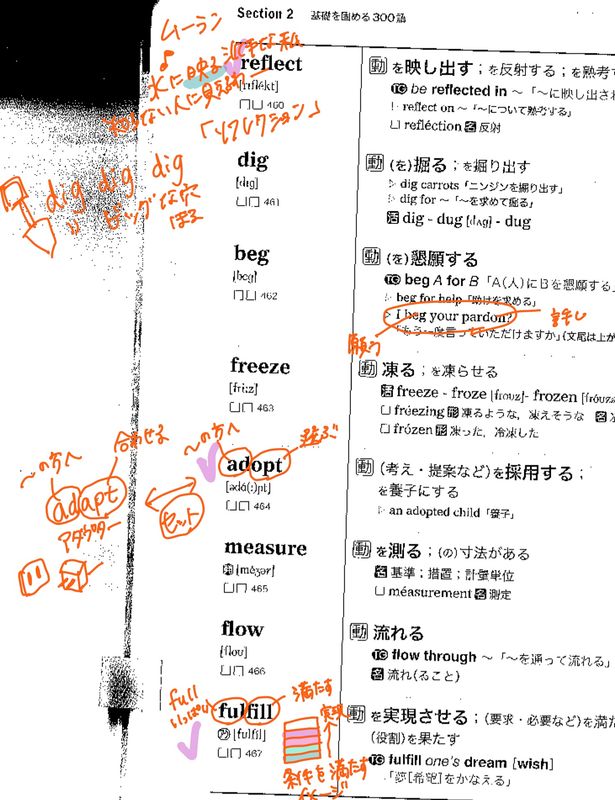 Section 2 基礎を固める300語
ムーラン
水に映る
知らない人に見える
「リフレクション」
reflect
[rɪflékt]
460
動 を映し出す；を反射する；を熟考す
TG be reflected in ～「～に映し出され
reflect on ～「～について熟考する」
refléction 名 反射
dig
[dɪg]
461
動 (を)掘る；を掘り出す
dig carrots「ニンジンを掘り出す」
dig for ～「～を求めて掘る」
活 dig - dug [dʌg] - dug
dig dig dig
ビッグな穴
ほる
beg
[beg]
462
動 (を)懇願する
TG beg A for B「A(人)にBを懇願する」
beg for help「助けを求める」
I beg your pardon?
「もう一度言っていただけますか」(文尾は上が
願う
許し
freeze
[friːz]
463
動 凍る；を凍らせる
活 freeze - froze [frouz] - frozen [fróuz
fréezing 形 凍るような，凍えそうな
frózen 形 凍った，冷凍した
～の方へ
選ぶ
adopt
[ədá(ː)pt]
464
動 (考え・提案など)を採用する；
を養子にする
an adopted child「養子」
～の方へ
合わせる
adapt
アダプター
セット
measure
[méʒər]
465
動 を測る；(の)寸法がある
名 基準；措置；計量単位
méasurement 名 測定
flow
[flou]
466
動 流れる
TG flow through ～「～を通って流れる」
名 流れ(ること)
full
いっぱい
満たす
fulfill
[fulfíl]
467
動 を実現させる；(要求・必要など)を満た
(役割)を果たす
TG fulfill one's dream [wish]
「夢[希望]をかなえる」
実現
条件を満たす
イメージ